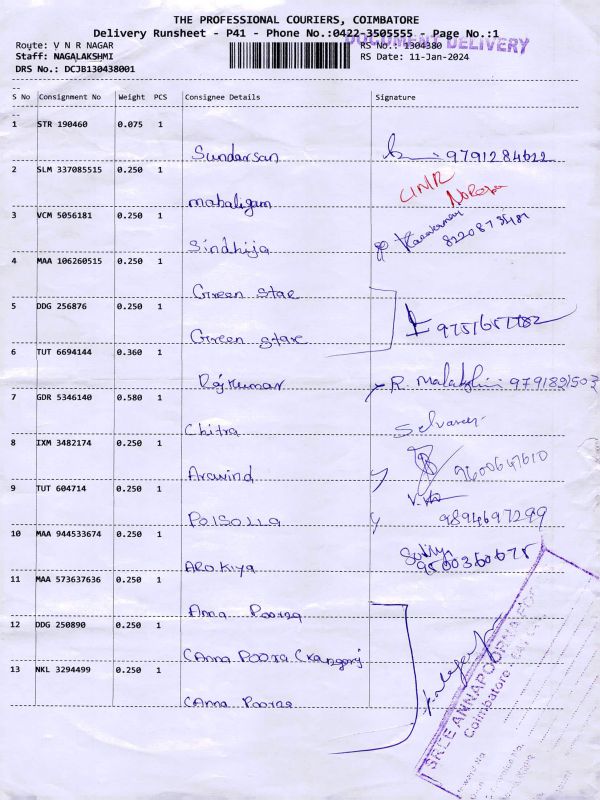 THE PROFESSIONAL COURIERS, COIMBATORE
Delivery Runsheet - P41 - Phone No.:0422-3505555 - Page No.:1
DOCUMENT DELIVERY
Route: V N R NAGAR
RS No.: 1304380
Staff: NAGALAKSHMI
RS Date: 11-Jan-2024
DRS No.: DCJB130438001
S No Consignment No Weight PCS Consignee Details Signature
1 STR 190460 0.075 1
Sundarsan 9791284622
2 SLM 337085515 0.250 1
mahaligam
3 VCM 5056181 0.250 1
Sindhija
4 MAA 106260515 0.250 1
Green star
5 DDG 256876 0.250 1
Green stare
6 TUT 6694144 0.360 1
Rajkumar R. 9791821503
7 GDR 5346140 0.580 1
Chitra
8 IXM 3482174 0.250 1
Aravind 9600647610
9 TUT 604714 0.250 1
9894697299
10 MAA 944533674 0.250 1
AROKiya 9500360675
11 MAA 573637636 0.250 1
Anna Poorna
12 DDG 250890 0.250 1
13 NKL 3294499 0.250 1
Anna Poorna
SREE ANNAPOORNA
Coimbatore